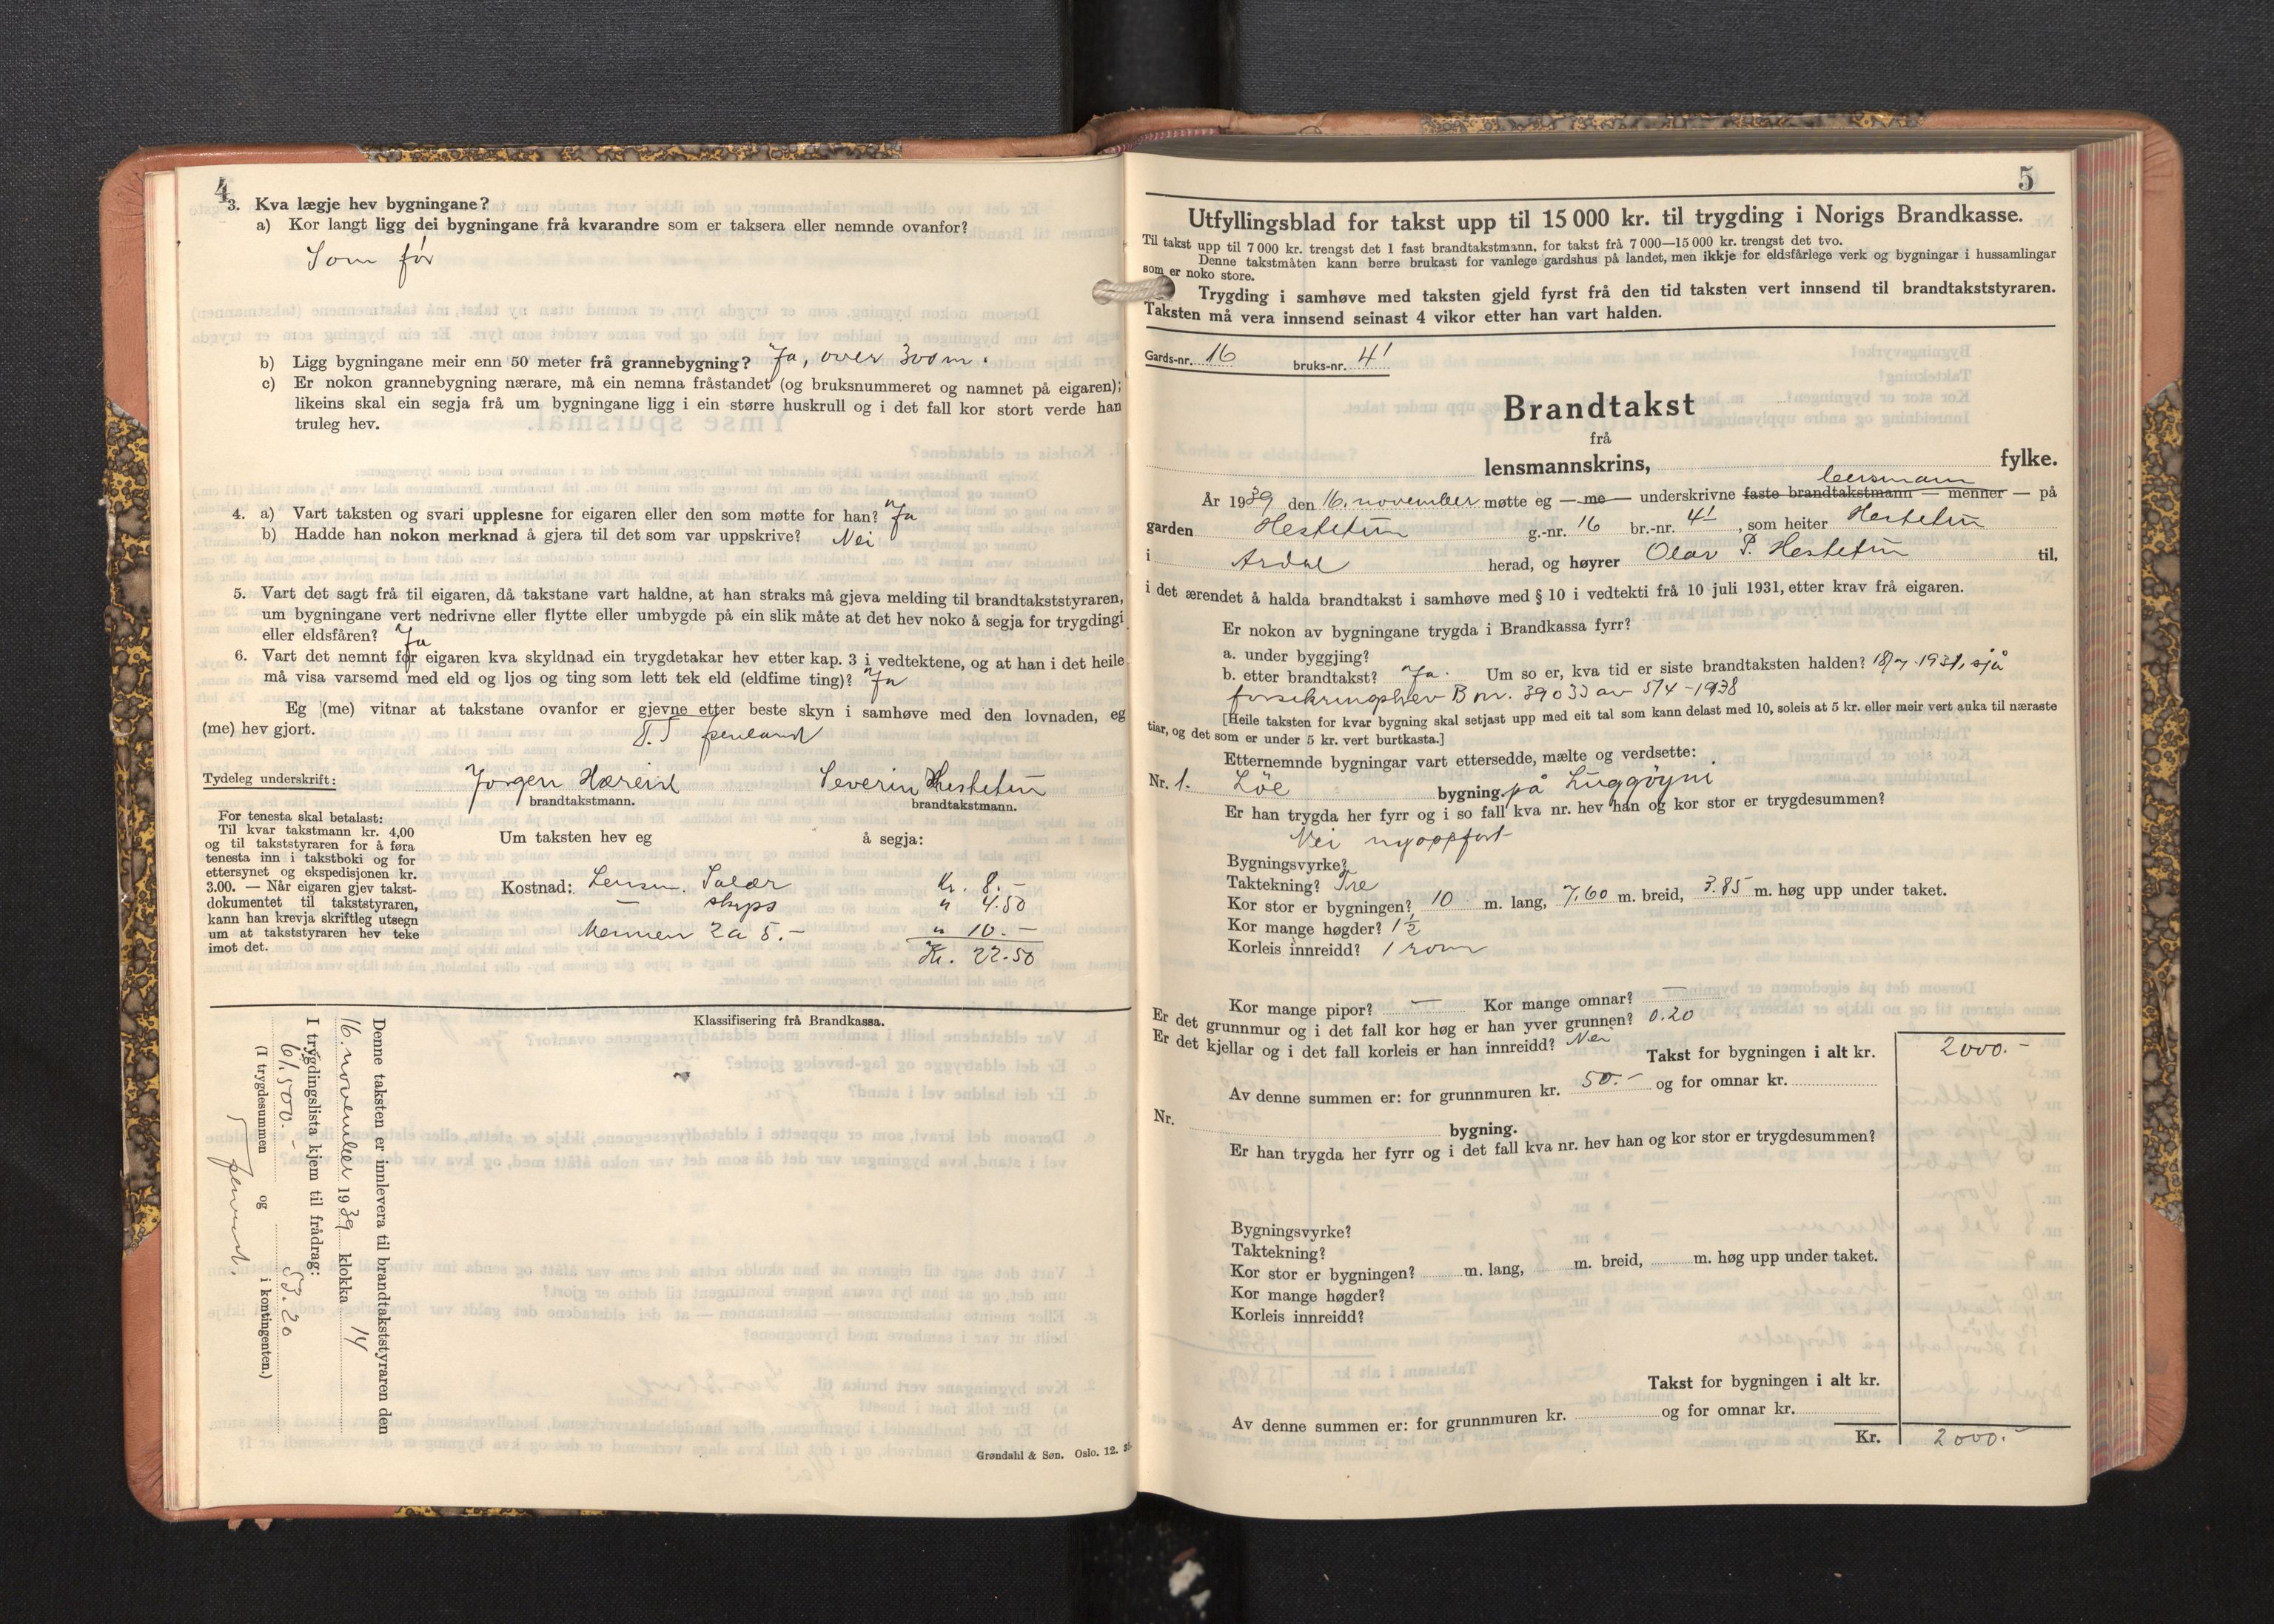 4
3. Kva lægje hev bygningane?
a) Kor langt ligg dei bygningane frå kvarandre som er taksera eller nemnde ovanfor?
Som før
b) Ligg bygningane meir enn 50 meter frå grannebygning? Ja, over 300 m.
c) Er nokon grannebygning nærare, må ein nemna fråstandet (og bruksnummeret og namnet på eigaren);
likeins skal ein segja frå um bygningane ligg i ein større huskrull og i det fall kor stort verde han
truleg hev.
4. a) Vart taksten og svari upplesne for eigaren eller den som møtte for han? Ja
b) Hadde han nokon merknad å gjera til det som var uppskrive? Nei
5. Vart det sagt frå til eigaren, då takstane vart haldne, at han straks må gjeva melding til brandtakststyraren,
um bygningane vert nedrivne eller flytte eller umbygde på ein slik måte at det hev noko å segja for trygdingi
eller eldsfåren? Ja
6. Vart det nemnt for eigaren kva skyldnad ein trygdetakar hev etter kap. 3 i vedtektene, og at han i det heile
må visa varsemd med eld og ljos og ting som lett tek eld (eldfime ting)? Ja
Eg (me) vitnar at takstane ovanfor er gjevne etter beste skyn i samhøve med den lovnaden, eg
(me) hev gjort.
Tydeleg underskrift: Jørgen Hæreid Severin Hestetun
brandtakstmann. brandtakstmann.
For tenesta skal betalast:
Til kvar takstmann kr. 4,00
og til takststyraren for å føra
tenesta inn i takstboki og for
ettersynet og ekspedisjonen kr.
3.00. — Når eigaren gjev takst-
dokumentet til takststyraren,
kann han krevja skriftleg utsegn
um at takststyraren hev teke
imot det.
Um taksten hev eg å segja:
Kostnad: Lensm. Salær Kr. 8.-
— skyss " 4.50
Mennen 2 a 5.- " 10.-
Kr. 22.50
Klassifisering frå Brandkassa.
Denne taksten er innlevera til brandtakststyraren den
16. november 1939 klokka 14
I trygdingslista kjem til frådrag:
61.500.- 53.20
(I trygdesummen og i kontingenten.)
Grøndahl & Søn. Oslo. 12.
5
Utfyllingsblad for takst upp til 15 000 kr. til trygding i Norigs Brandkasse.
Til takst upp til 7 000 kr. trengst det 1 fast brandtakstmann, for takst frå 7 000—15 000 kr. trengst det tvo.
Denne takstmåten kann berre brukast for vanlege gardshus på landet, men ikkje for eldsfårlege verk og bygningar i hussamlingar
som er noko store.
Trygding i samhøve med taksten gjeld fyrst frå den tid taksten vert innsend til brandtakststyraren.
Taksten må vera innsend seinast 4 vikor etter han vart halden.
Gards-nr. 16 bruks-nr. 41
Brandtakst
frå
lensmannskrins, fylke.
År 1939 den 16. november møtte eg — me — underskrivne faste brandtakstmann — menner — på
garden Hestetun g.-nr. 16 br.-nr. 41, som heiter Hestetun
i Ardal herad, og høyrer Olav P. Hestetun til,
i det ærendet å halda brandtakst i samhøve med § 10 i vedtekti frå 10 juli 1931, etter krav frå eigaren.
Er nokon av bygningane trygda i Brandkassa fyrr?
a. under byggjing?
b. etter brandtakst? Ja. Um so er, kva tid er siste brandtaksten halden? 18/7-1931, sjå
forsikringsbrev B nr. 39033 av 5/4-1938
[Heile taksten for kvar bygning skal setjast upp med eit tal som kann delast med 10, soleis at 5 kr. eller meir vert auka til næraste
tiar, og det som er under 5 kr. vert burtkasta.]
Etternemnde bygningar vart ettersedde, mælte og verdsette:
Nr. 1. Löe bygning. på
Er han trygda her fyrr og i so fall kva nr. hev han og kor stor er trygdesummen?
Nei nyoppført
Bygningsvyrke?
Taktekning? Tre
Kor stor er bygningen? 10 m. lang, 7,60 m. breid, 3.85 m. høg upp under taket.
Kor mange høgder? 1½
Korleis innreidd? 1 rom
Kor mange pipor? — Kor mange omnar? —
Er det grunnmur og i det fall kor høg er han yver grunnen? 0.20
Er det kjellar og i det fall korleis er han innreidd? Nei
Takst for bygningen i alt kr. 2000.-
Av denne summen er: for grunnmuren kr. 50.- og for omnar kr.
Nr. bygning.
Er han trygda her fyrr og i det fall kva nr. hev han og kor stor er trygdesummen?
Bygningsvyrke?
Taktekning?
Kor stor er bygningen? m. lang, m. breid, m. høg upp under taket.
Kor mange høgder?
Korleis innreidd?
Takst for bygningen i alt kr.
Av denne summen er: for grunnmuren kr. og for omnar kr.
Kr. 2000.-